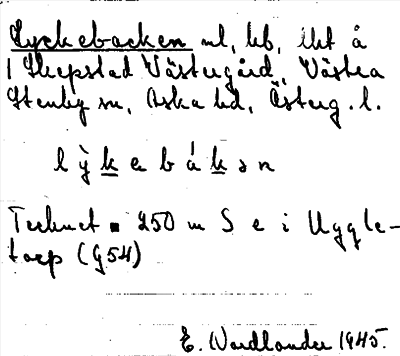 Lyckebacken ml, bb, ikt å
1 Skepstad Västergård, Västra
Stenby sn, Aska hd, Österg. l.
l ỳ k e b á k ə n
Tecknet ■ 250 m S e i Uggle-
torp (G54)
E. Nordlander 1945.